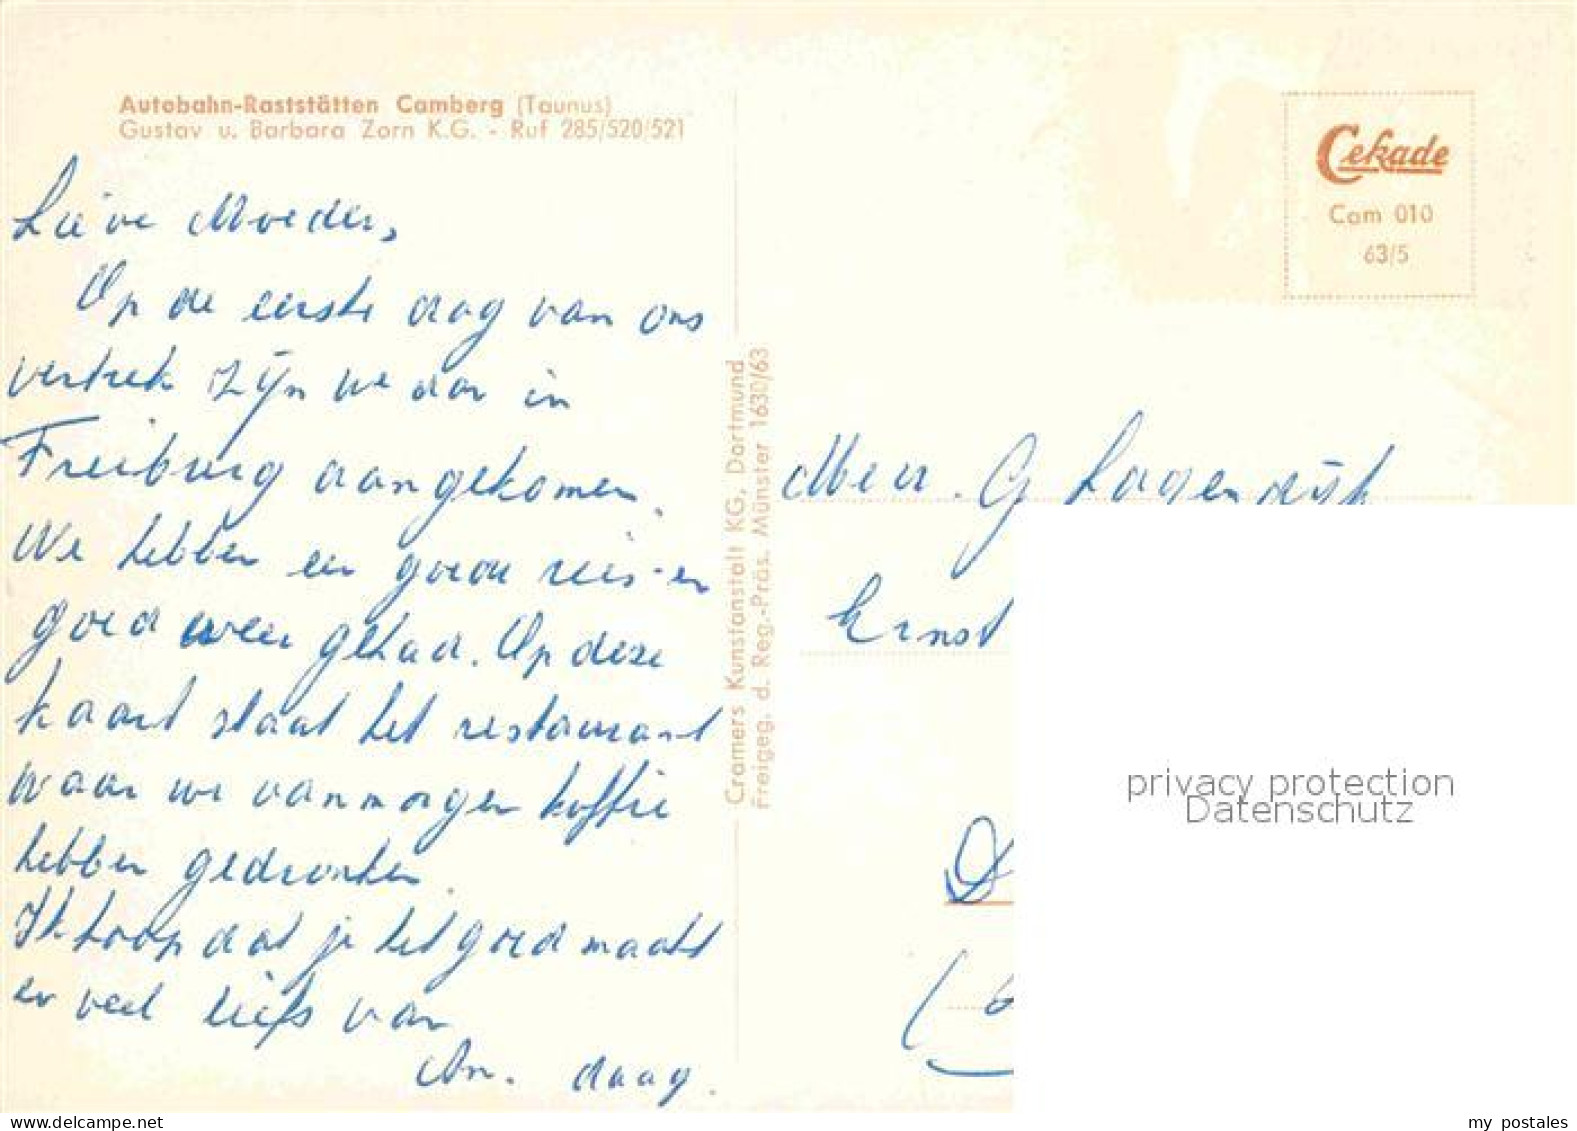 Autobahn-Raststätten Camberg (Taunus)
Gustav u. Barbara Zorn K.G. - Ruf 285/520/521
Lieve Moeder,
Op de eerste dag van ons
vertrek zijn we dan in
Freiburg aangekomen.
We hebben een goede reis en
goed weer gehad. Op deze
kaart staat het restaurant
waar we vanmorgen koffie
hebben gedronken.
Ik hoop dat je het goed maakt
en veel liefs van
An. daag.
Cramers Kunstanstalt KG, Dortmund
Freigeg. d. Reg.-Präs. Münster 1630/63
Cekade
Cam 010
63/5
Mevr. G Lagendijk
Ernst
D
privacy protection
Datenschutz
my postales